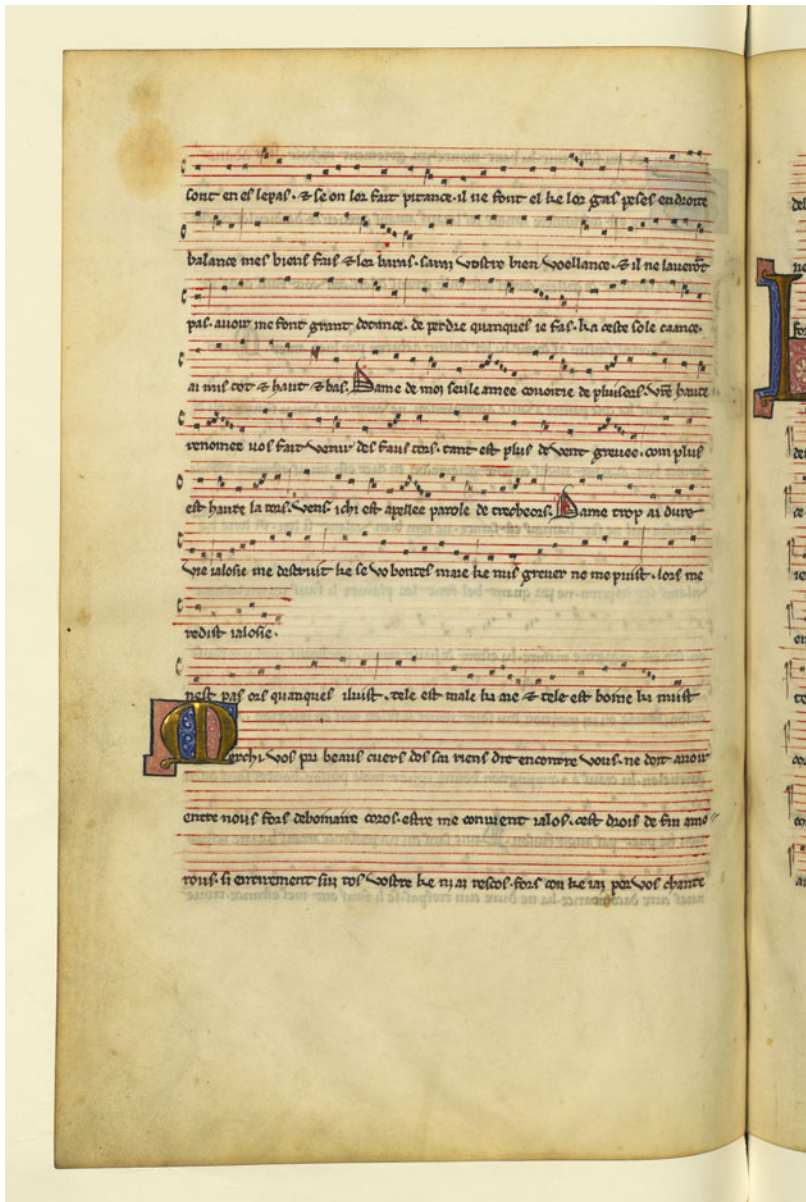 sont en es lepas. & se on lor fait pitance. il ne font el ke lor gas peses endroite
balance mes biens fais & lor baras. sarai vostre bien voellance. & il ne laverōt
pas. avoir me font grant dotance. de perdre quanques ie fas. ka ceste sole caance.
ai mis tot & haut & bas. Dame de moi seule amee covoitie de pluisors. vrē haute
renomee vos fait venir des faus tors. tant est plus de vent grevee. com plus
est haute la tors. vens. ichi est apellee parole de trecheors. Dame trop ai dure
vie ialosie me destruit ke se vo bontes maie ke nus grever ne me puist. lors me
redist ialosie.
nest pas ors quanques iluist. tele est male ki aie & tele est boine ki nuist
Merchi vos pri beaus cuers dos sai riens dit encontre vous. ne doit avoir
entre nous fors debonaire coros. estre me convient ialos. cest drois de fin amo
rous. si entirement sui tos vostre ke ni ai rescos. fors con ke iai por vos chante